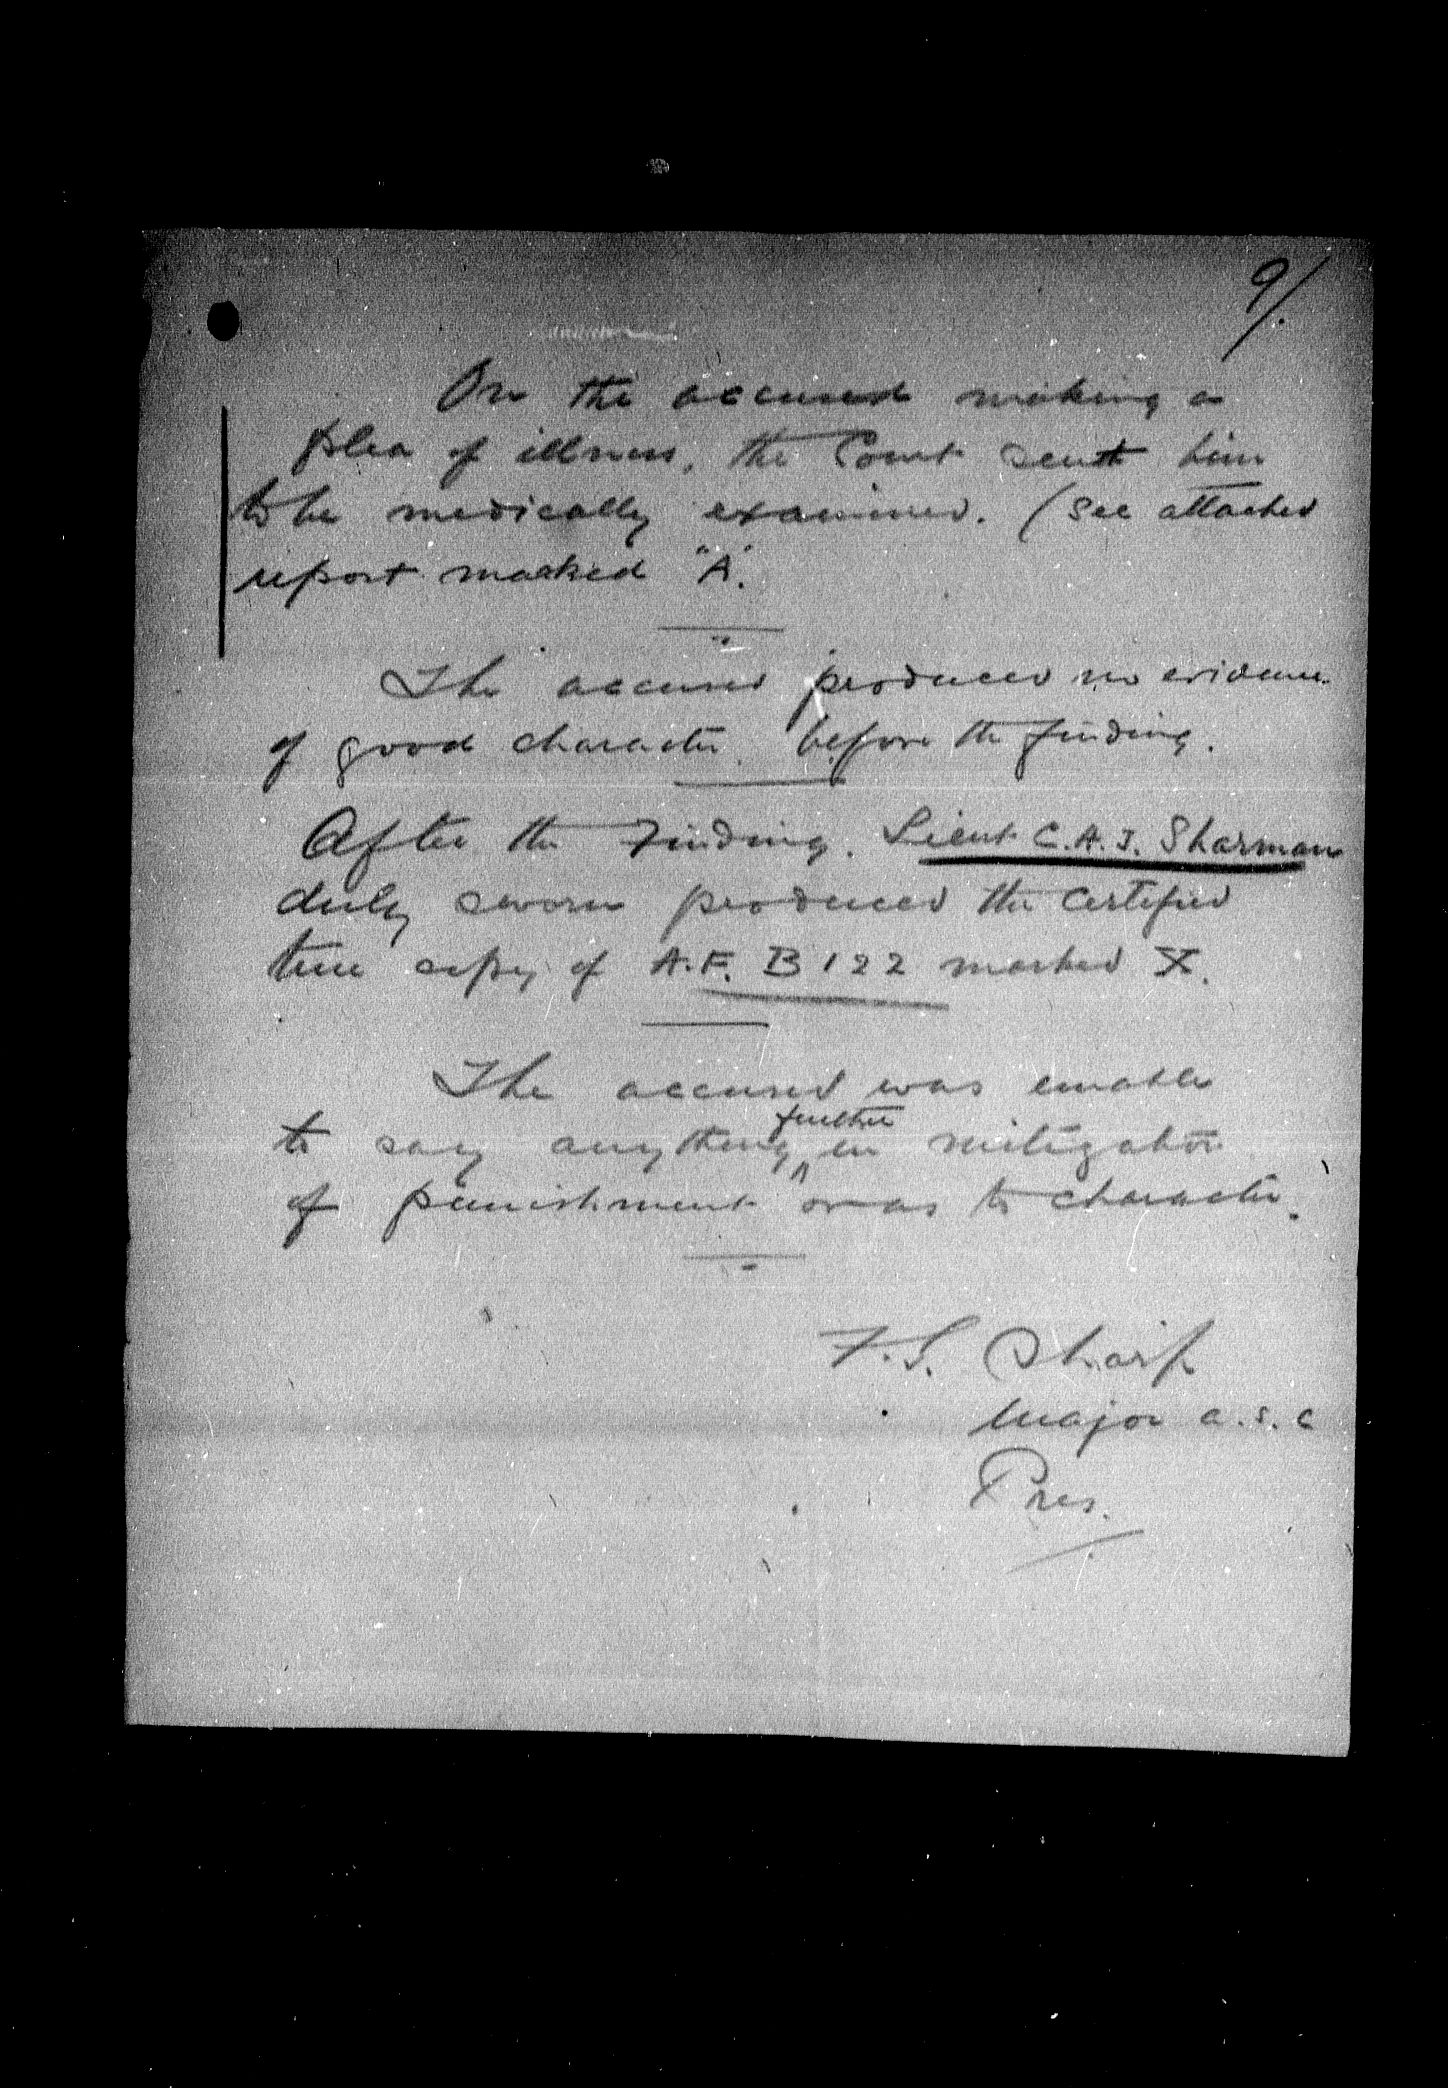 9/.
On the accused making a
plea of illness, the Court sent him
to be medically examined. (See attached
report marked "A".
The accused produced no evidence
of good character before the finding.
After the Finding. Lieut C.A.J. Sharman
duly sworn produced the certified
true copy of A.F. B 122 marked X.
The accused was unable
further
to say anything ^ in mitigation
of punishment or as to character.
F.S. Sharp
Major A.S.C
Pres.